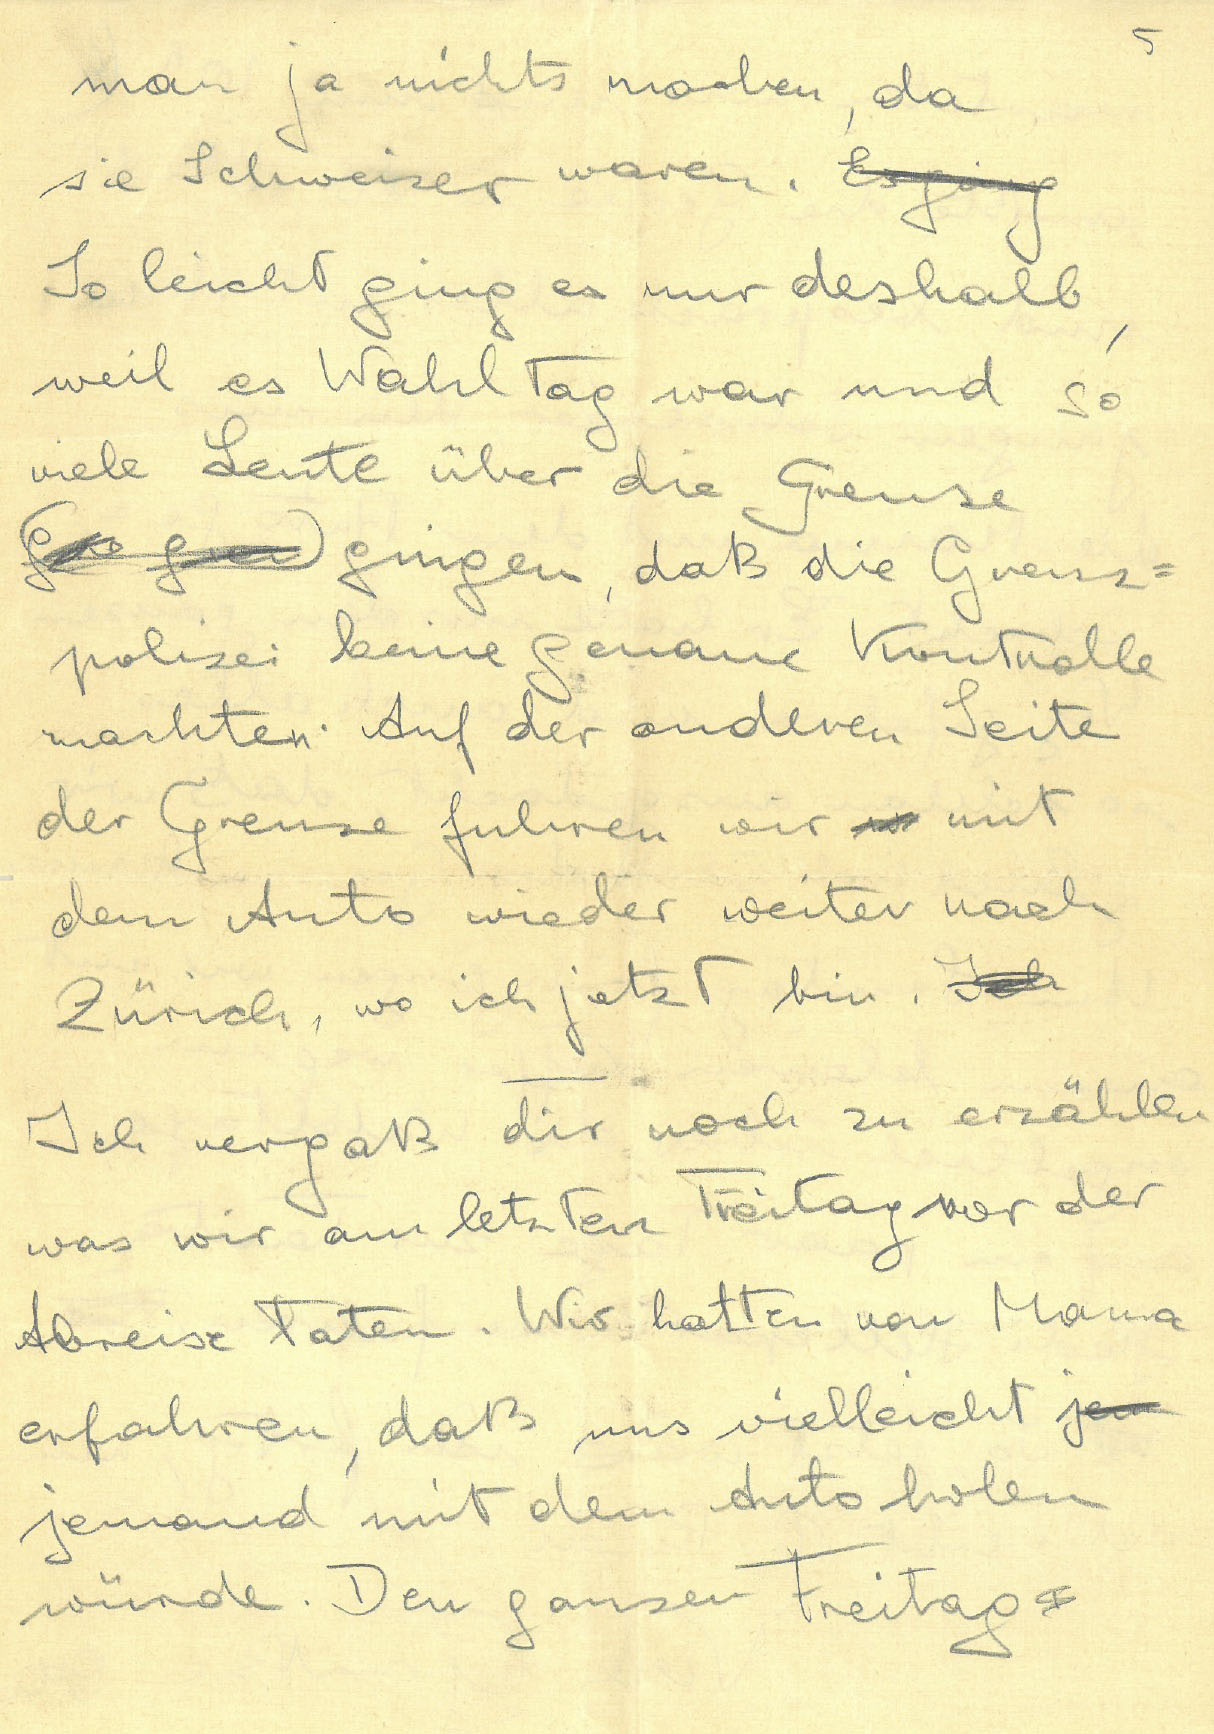 5
man ja nichts machen, da
sie Schweizer waren. Es ging
So leicht ging es nur deshalb,
weil es Wahltag war und so
viele Leute über die Grenze
gingen, daß die Grenz=
polizei keine genaue Kontrolle
machten. Auf der anderen Seite
der Grenze fuhren wir mit
dem Auto wieder weiter nach
Zürich, wo ich jetzt bin. Ich
Ich vergaß dir noch zu erzählen
was wir am letzten Freitag vor der
Abreise taten. Wir hatten von Mama
erfahren, daß uns vielleicht jem
jemand mit dem Auto holen
würde. Den ganzen Freitag